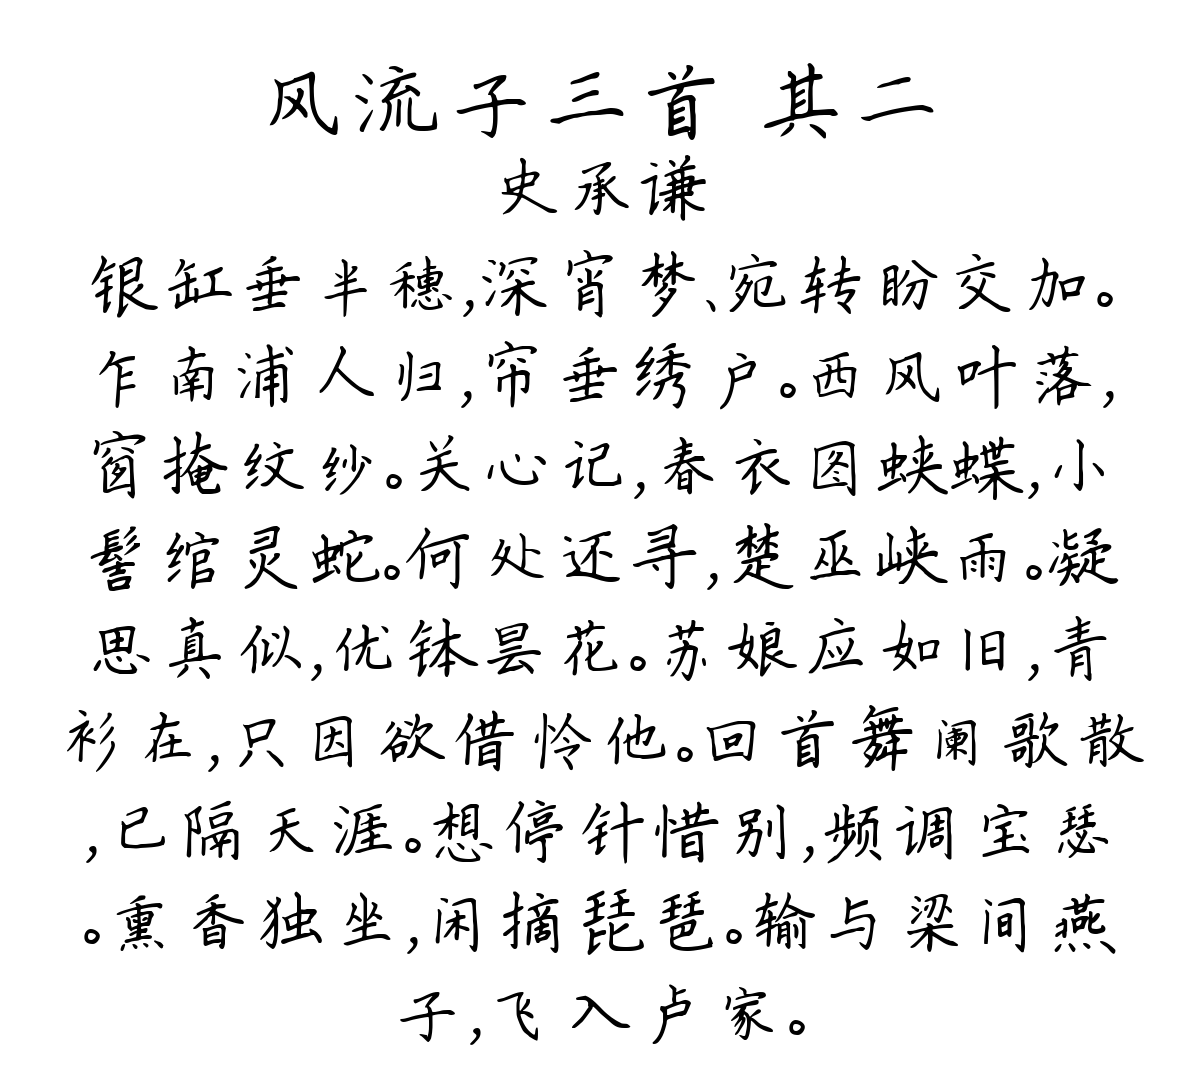 风流子三首 其二
史承谦
银缸垂半穗,深宵梦、宛转盼交加。
乍南浦人归,帘垂绣户。西风叶落,
窗掩纹纱。关心记,春衣图蛱蝶,小
髻绾灵蛇。何处还寻,楚巫峡雨。凝
思真似,优钵昙花。苏娘应如旧,青
衫在,只因欲借怜他。回首舞阑歌散
,已隔天涯。想停针惜别,频调宝瑟
。熏香独坐,闲摘琵琶。输与梁间燕
子,飞入卢家。